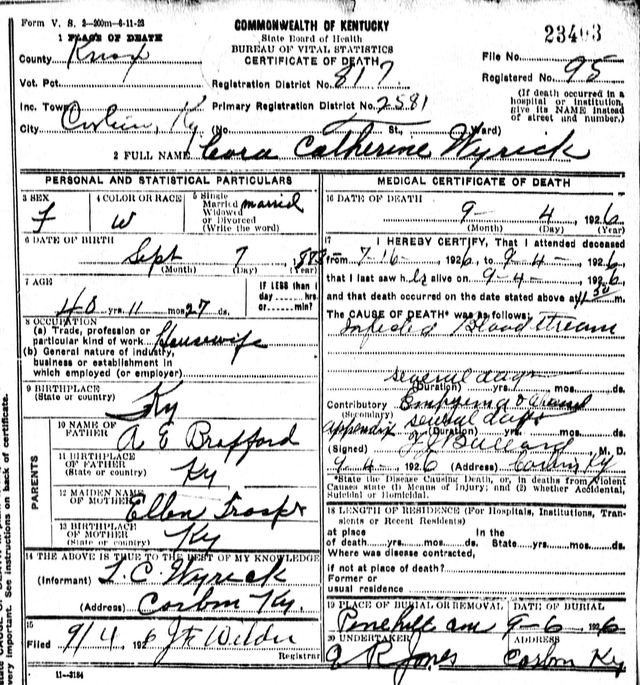 Form V. S. 2-200m-6-11-23
COMMONWEALTH OF KENTUCKY
State Board of Health
BUREAU OF VITAL STATISTICS
CERTIFICATE OF DEATH
23403
1 PLACE OF DEATH
County Knox
File No.
Vot. Pct.
Registration District No. 817
Registered No. 95
Inc. Town
Primary Registration District No. 2581
(If death occurred in a hospital or institution, give its NAME instead of street and number.)
City Corbin, Ky (No. St., Ward)
2 FULL NAME Cora Catherine Wyrick
PERSONAL AND STATISTICAL PARTICULARS
3 SEX
F
4 COLOR OR RACE
W
5 Single
Married married
Widowed
or Divorced
(Write the word)
6 DATE OF BIRTH
Sept 7
(Month) (Day) (Year)
7 AGE
yrs. 11 mos. 27 ds.
IF LESS than 1
day hrs.
or min?
8 OCCUPATION
(a) Trade, profession or
particular kind of work Housewife
(b) General nature of industry,
business or establishment in
which employed (or employer)
9 BIRTHPLACE
(State or country)
Ky
PARENTS
10 NAME OF
FATHER
A E Brafford
11 BIRTHPLACE
OF FATHER
(State or country)
Ky
12 MAIDEN NAME
OF MOTHER
Ellen
13 BIRTHPLACE
OF MOTHER
(State or country)
Ky
14 THE ABOVE IS TRUE TO THE BEST OF MY KNOWLEDGE
(Informant) L. C. Wyrick
(Address) Corbin Ky.
15
Filed 9/4 1926
Registrar
11-3184
MEDICAL CERTIFICATE OF DEATH
16 DATE OF DEATH
9- 4 1926
(Month) (Day) (Year)
17 I HEREBY CERTIFY, That I attended deceased
from 7-16- 1926, to 9-4- 1926,
that I last saw her alive on 9-4- 1926,
and that death occurred on the date stated above at m.
The CAUSE OF DEATH* was as follows:
Infected Blood stream
several days
(Duration) yrs. mos. ds.
Contributory Empyema
(Secondary)
appendix several days
(Duration) yrs. mos. ds.
(Signed) Bullard, M. D.
9-4-1926 (Address) Corbin Ky
*State the Disease Causing Death, or, in deaths from Violent
Causes state (1) Means of Injury; and (2) whether Accidental,
Suicidal or Homicidal.
18 LENGTH OF RESIDENCE (For Hospitals, Institutions, Tran-
sients or Recent Residents)
At place In the
of death yrs. mos. ds. State yrs. mos. ds.
Where was disease contracted,
if not at place of death?
Former or
usual residence
19 PLACE OF BURIAL OR REMOVAL
DATE OF BURIAL
9-6 1926
20 UNDERTAKER
Jones
ADDRESS
Corbin Ky
very important. See instructions on back of certificate.